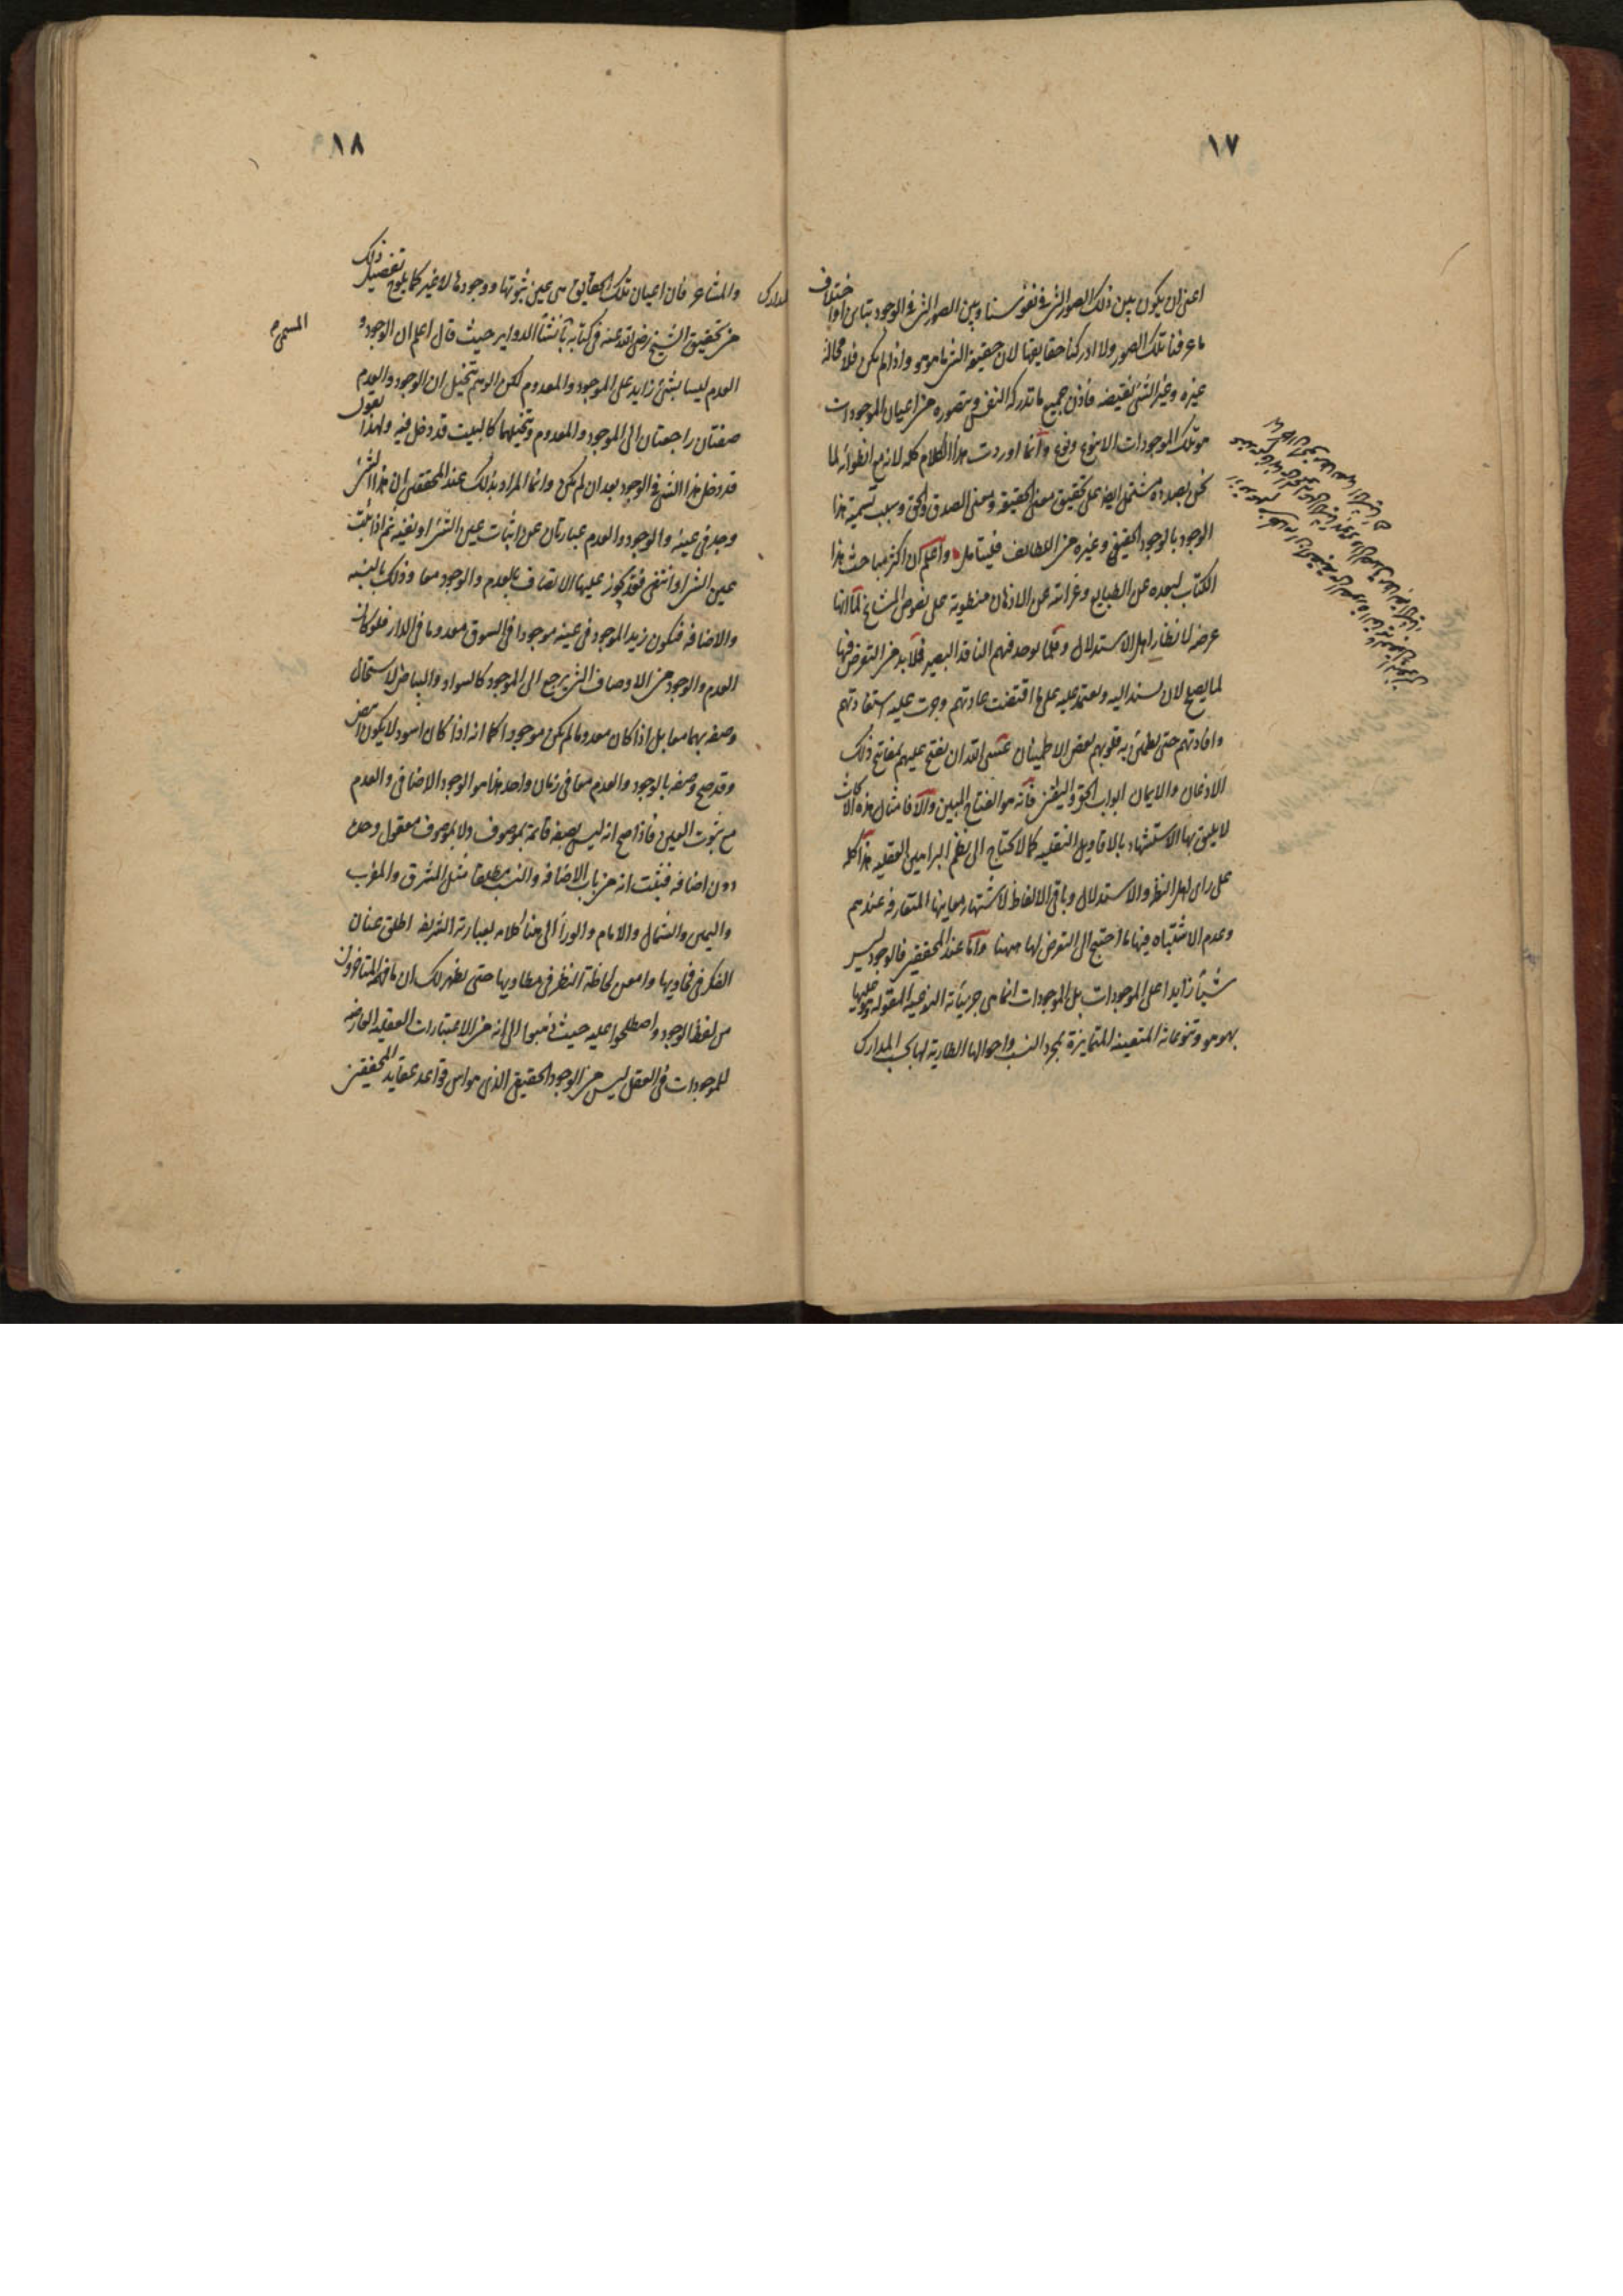 ١٧
اعنى ان يكون بين ذلك الصور التى فى نفوسنا وبين الصور التى فى الوجود تباين او اختلاف
ما عرفنا تلك الصور ولا ادركنا حقايقها لان حقيقة الشى ما هو هو واذا لم يكن فلا محالة
غيره وغير الشئ نقيضه فاذن جميع ما تدركه النفس وتتصوره من اعيان الموجودات
هو تلك الموجودات الا بنوع ونوع وانما اوردت هذا الكلام كله لانه مع انطوائه لما
نحن بصدده مشتمل ايضا على تحقيق معنى الحقيقة ومعنى الصدق والحق وسبب تسمية هذا
الوجود بالوجود الحقيقى وغيره من اللطائف فليتامل واعلم ان اكثر مباحث هذا
الكتاب لبعده عن الطبايع وغرابته عن الاذهان منطوية على نصوص المشايخ لما انها
عرضة لانظار اهل الاستدلال وقلما يوجد فيهم الناقد البصير فلابد من التعرض فيها
لما يصلح لان يستند اليه ويعتمد عليه على ما اقتضت عادتهم وجرت عليه استفادتهم
وافادتهم حتى يطمئن به قلوبهم بعض الاطمينان عسى الله ان يفتح عليهم بمفاتيح ذلك
الاذعان والايمان ابواب الحق واليقين فانه هو الفتاح المبين والا فامثال هذه الابحاث
لا يليق بها الاستشهاد بالاقاويل النقليه كما لا تحتاج الى نظم البراهين العقليه هذا كله
على راى اهل النظر والاستدلال وباقى الالفاظ لاشتهار معانيها المتعارفة عندهم
وعدم الاشتباه فيها ما احتيج الى التعرض لها ههنا واما عند المحققين فالوجود ليس
شيأ زايدا على الموجودات بل الموجودات انما هى جزئياته النوعية المقولة هو عليها
بهو هو وتنوعاته المتعينة المتمايزة بمجرد النسب واحوالها الطارية لها بحسب المدارك
المدارك
١٨
والمشاعر فان اعيان تلك الحقايق هى عين ثبوتها ووجودها لا غير كما يلوح تفصيل ذلك
من تحقيق الشيخ رضى الله عنه فى كتابه بانشأ الدواير حيث قال اعلم ان الوجود و
المسمى م
العدم ليسا بشئ زايد على الموجود والمعدوم لكن الوهم يتخيل ان الوجود والعدم
صفتان راجعتان الى الموجود والمعدوم ويتخيلهما كالبيت قد دخل فيه ولهذا نقول
قد دخل هذا الشى فى الوجود بعد ان لم يكن وانما المراد بذلك عند المحققين ان هذا الشى
وجد فى عينه والوجود والعدم عبارتان عن اثبات عين الشى او نفيه ثم اذا ثبت
عين الشى او انتفى فقد يجوز عليها الاتصاف بالعدم والوجود معا وذلك بالنسبه
والاضافه فيكون زيد الموجود فى عينه موجودا فى السوق معدوما فى الدار فلو كان
العدم والوجود من الاوصاف التى يرجع الى الموجود كالسواد والبياض لاستحال
وصفه بهما معا بل اذا كان معدوما لم يكن موجودا كما انه اذا كان اسود لا يكون ابيض
وقد صح وصفه بالوجود والعدم معا فى زمان واحد هذا هو الوجود الاضافى والعدم
مع ثبوت العين فاذا صح انه ليس بصفه قائمة بموصوف ولا بموصوف معقول وحده
دون اضافه فيثبت انه من باب الاضافه والنسب مطلقا مثل المشرق والمغرب
واليمين والشمال والامام والورآ الى هنا كلامه بعبارته الشريفه اطلق عنان
الفكر فى فحاويها وامعن لحاظة النظر فى مطاويها حتى يظهر لك ان ما فهم المتاخرون
من لفظ الوجود واصطلحوا عليه حيث ذهبوا الى انه من الاعتبارات العقليه العارضه
للموجودات فى العقل ليس من الوجود الحقيقى الذى هو اس قواعد عقايد المحققين